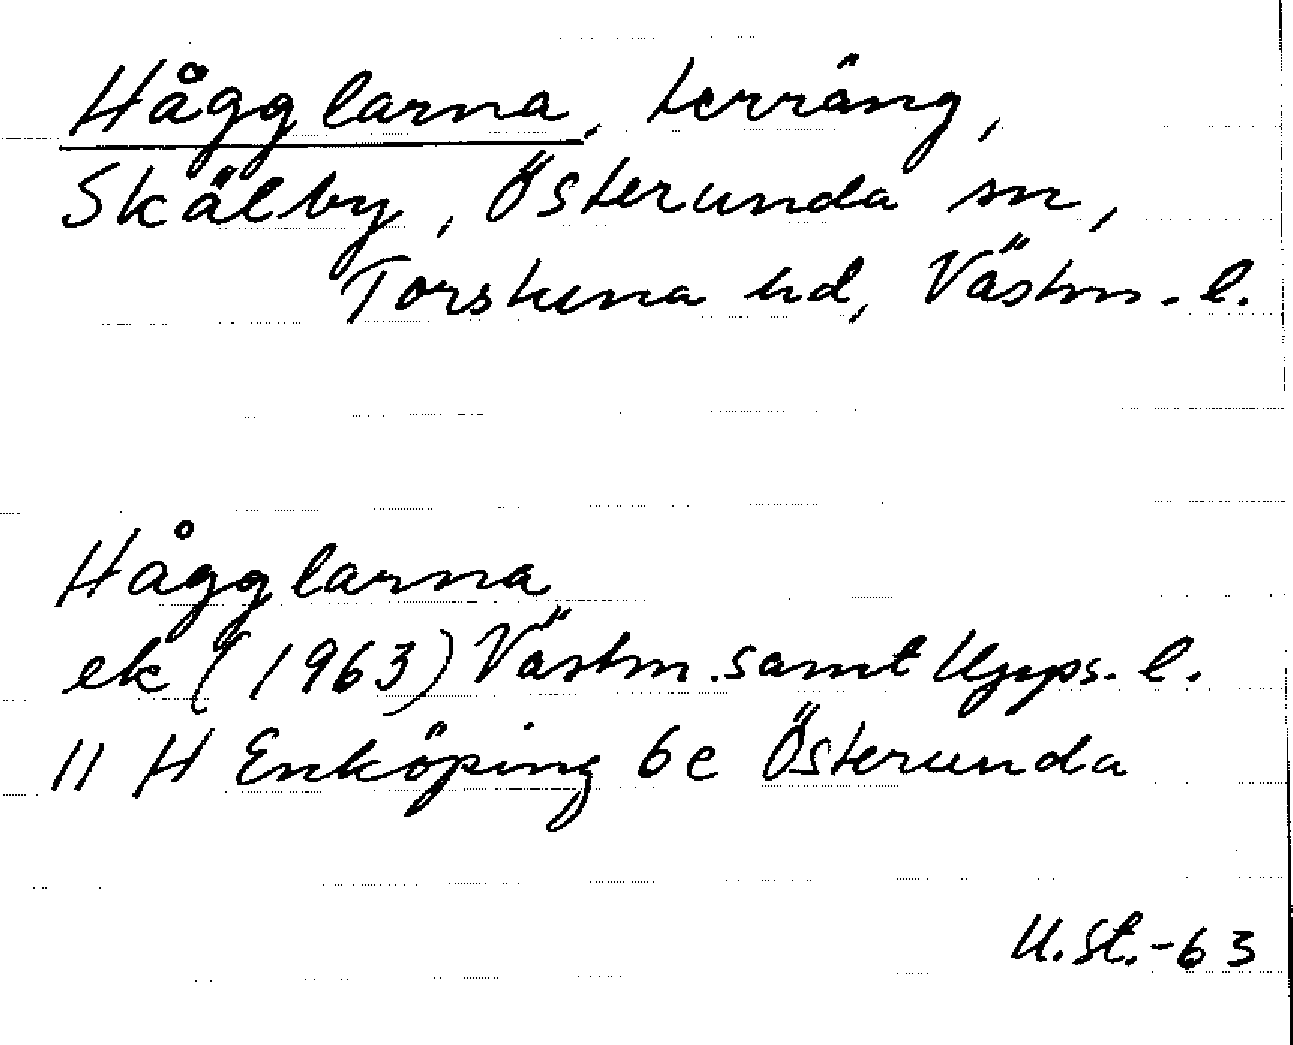 Hågglarna, terräng,
Skälby, Österunda sn,
Torstuna hd, Västm. l.
Hågglarna
ek (1963) Västm. samt Upps. l.
11 H Enköping 6c Österunda
U.St.-63